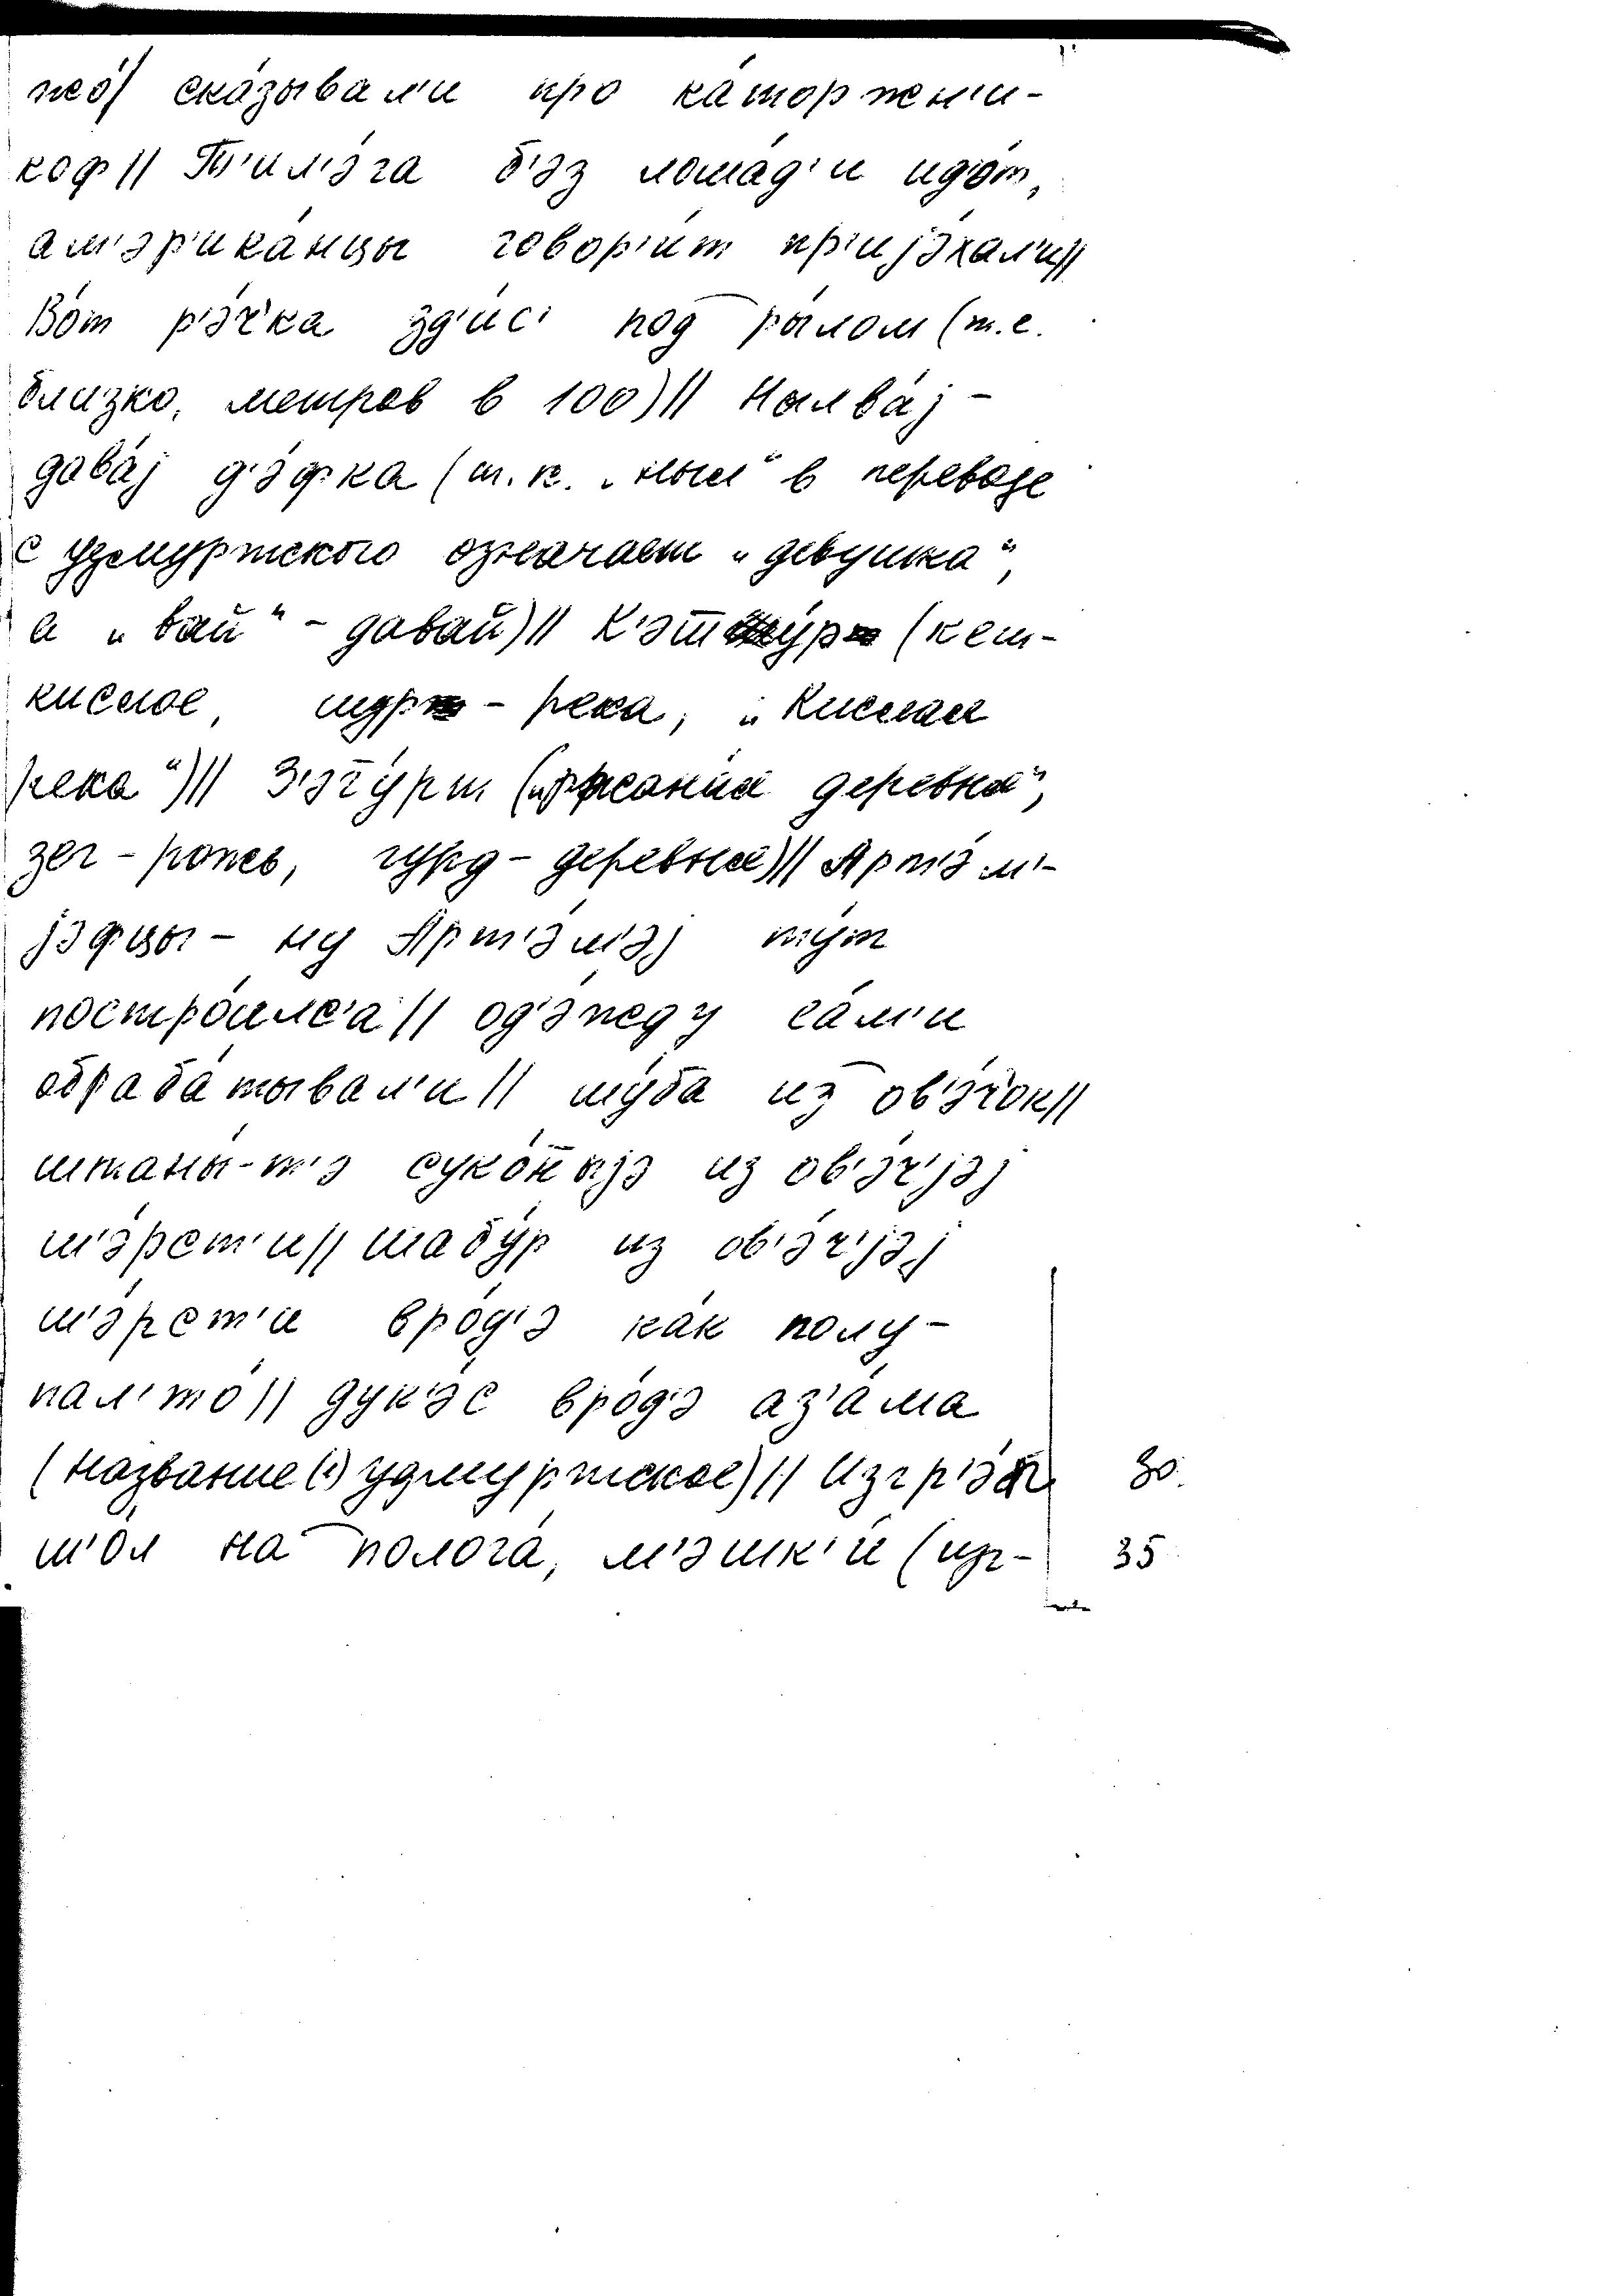 жо́| ска́зывал'и про ка́торжен'и-
коф || Т'ил'э́га б'эз лошад'и ид'о́т,
ам'эр'ика́нцы говор'и́т пр'иjэ́хал'и ||
Во́т р'э́ч'ка зд'ис' под ры́лом (т.е.
близко, метров в 100) || Нылва́j -
дава́j д'э́фка (т.к. „ныл“ в переводе
с удмуртского означает „девушка“,
а „вай“ - давай) || К'эту́р (кет-
кислое, шур - река, „Кислая
река“) || З'эгу́рт („ржаная деревня“,
зег - рожь, гурд - деревня) || Арт'э́м'-
jэфцы - ну Арт'э́м'эj ту́т
постро́илс'а || од'э́жду са́м'и
обраба́тывал'и || шу́ба из ов'э́ч'ок ||
штаны́-т'э суко́н̅ыjэ из ов'э́ч'jэj
ш'э́рст'и || шабу́р из ов'э́ч'jэj
ш'э́рст'и вро́д'э ка́к полу-
пал'то́ || дук'э́с вро́д'э аз'а́ма
(название (!) удмуртское) || Изгр'э́б 30.
ш'о́л на полога́, м'эшк'и́ (изг- 35